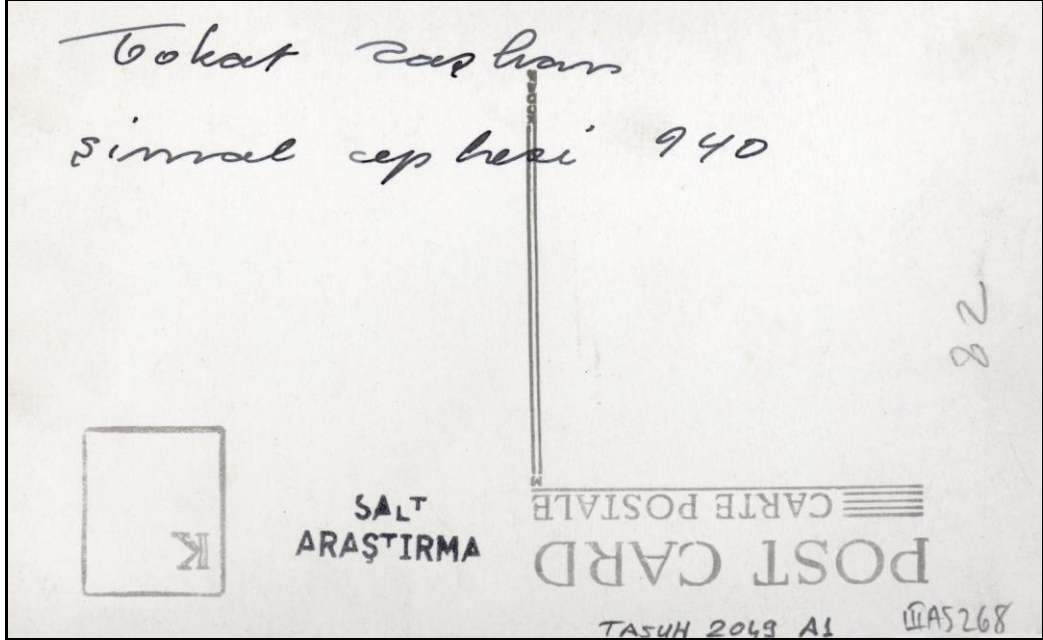 Tokat Taşhan
şimal cephesi 940
82
SALT
ARAŞTIRMA
CARTE POSTALE
POST CARD
K
TASUH 2049 A1
IIIA5268